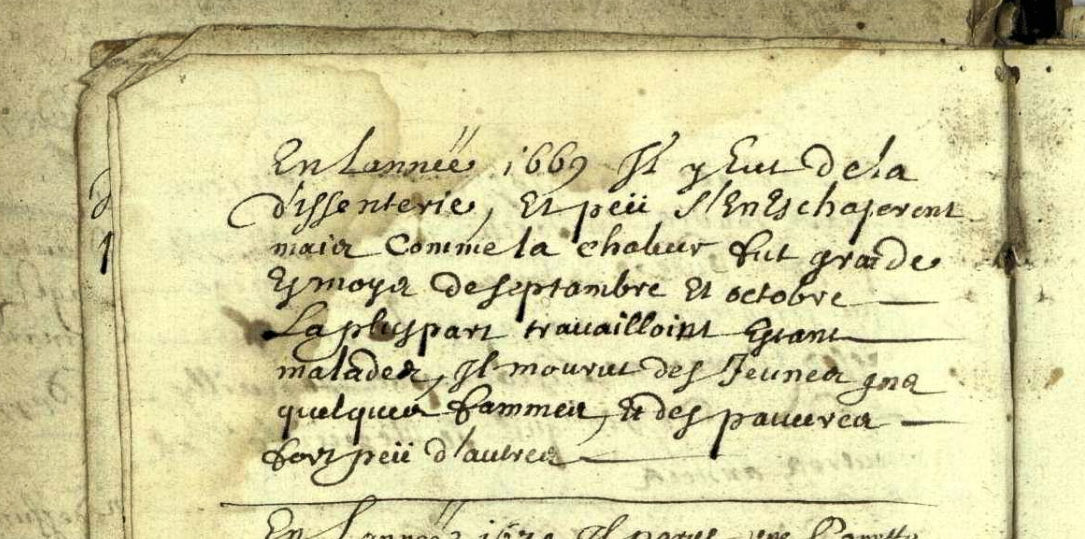 En Lanneë 1669 Il y Eut de la
dissenterie, Et peü s'En Eschaperent
mais Comme la chaleur fut grande
Es moys de septambre Et octobre
La pluspart travailloint Estant
malades, Il mourut des Jeunes gns
quelques fammes, Et des pauvres
fort peü d'autres
En Lanneë 1670 Il parut une